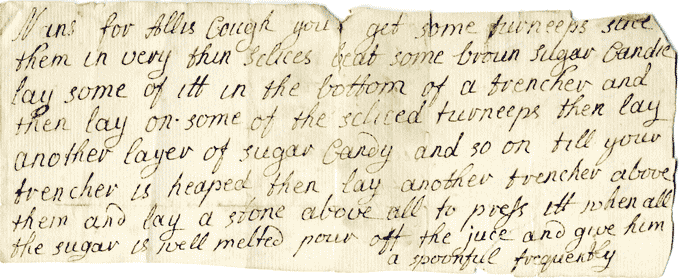 Mans for Allis Cough you get some turneeps slice
them in very thin sclices beat some broun sugar Candie
lay some of itt in the bottom of a trencher and
then lay on some of the scliced turneeps then lay
another layer of sugar Candy and so on till your
trencher is heaped then lay another trencher above
them and lay a stone above all to press itt when all
the sugar is well melted pour off the juce and give him
a spoonful frequently